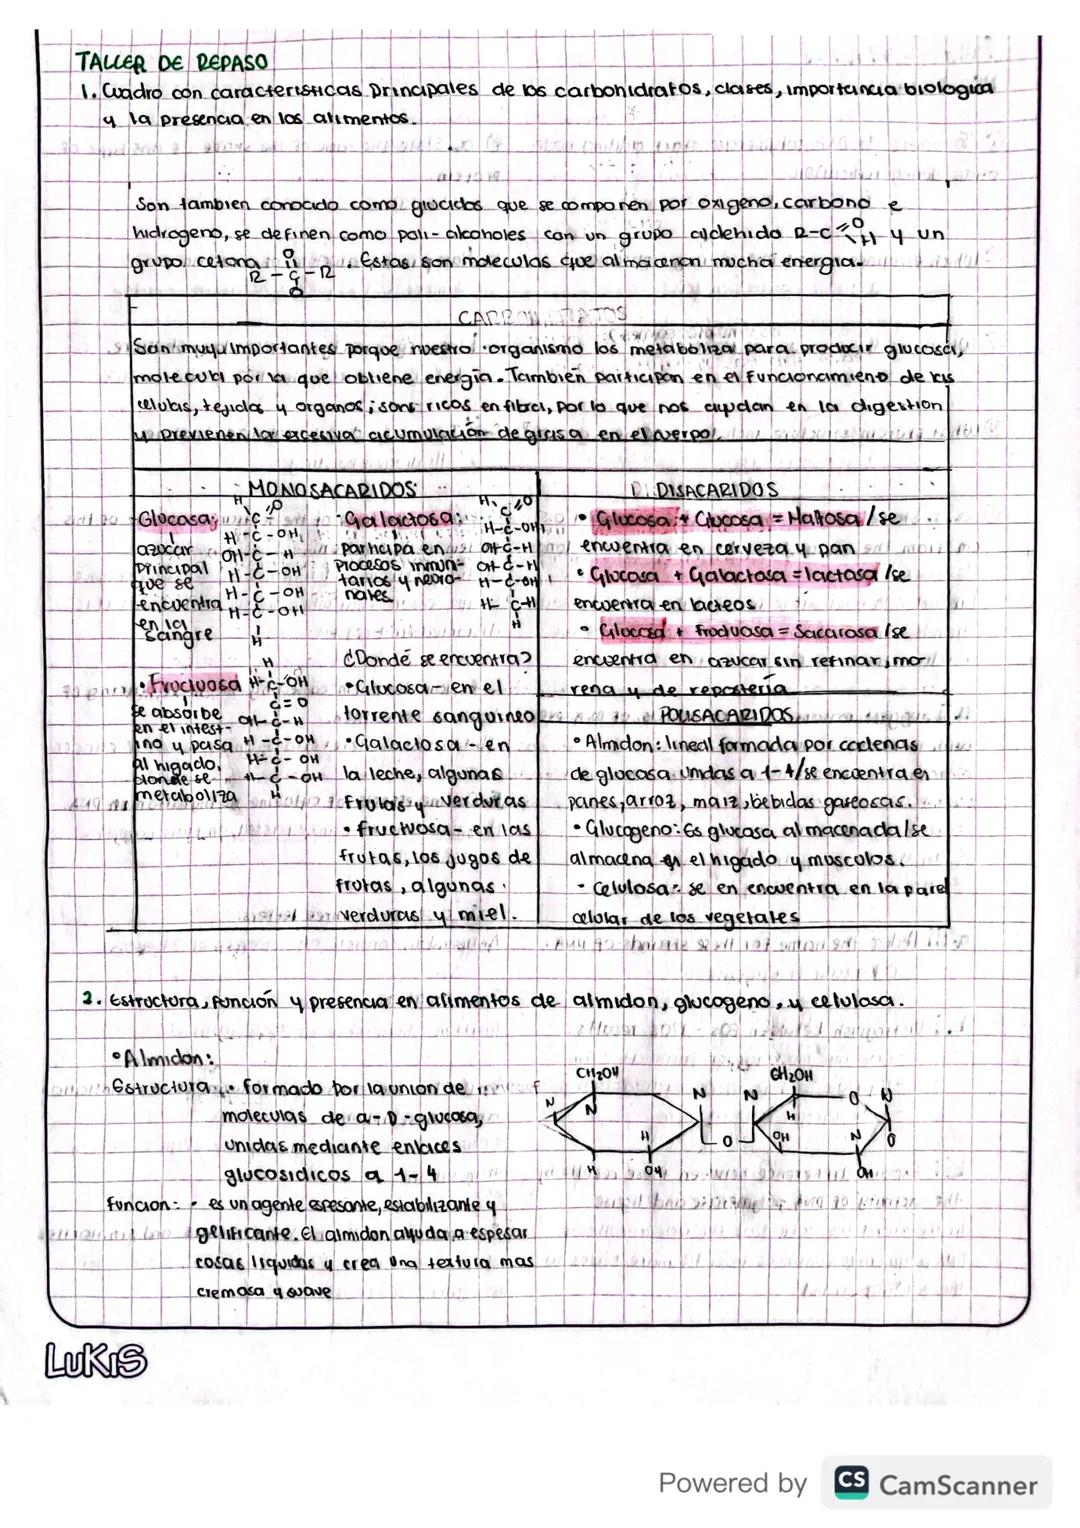 TALLER DE REPASO
1. Cuadro con caracteristicas principales de los carbohidratos, clases, importancia biologica
y la presencia en los alimentos.
Son tambien conocido como glucidos que se componen por oxigeno, carbono e
hidrogeno, se definen como poli-alcoholes con un grupo aldehido R-C=O H y un
grupo cetona R-C-R . Estas son moleculas que almacenan mucha energia.
CARBOHIDRATOS
Son muy importantes porque nuestro organismo los metaboliza para producir glucosa,
molecula por la que obtiene energia. También participan en el funcionamiento de las
celulas, tejidos y organos; sons ricos en fibra, por lo que nos ayudan en la digestion
y previenen la excesiva acumulación de grasa en el cuerpo.
MONOSACARIDOS
Glucosa:
azucar
principal
que se
encuentra
en la
sangre
H C=O
H-C-OH
OH-C-H
H-C-OH
H-C-OH
H-C-OH
H
Galactosa:
participa en
procesos inmuni-
tarios y neuro-
nales
H C=O
H-C-OH
OH-C-H
OH-C-H
H-C-OH
H C-H
H
• Fructuosa
se absorbe
en el intest-
ino y pasa
al higado,
donde se
metaboliza
H
H-C-OH
C=O
OH-C-H
H-C-OH
H-C-OH
H-C-OH
H
¿Donde se encuentra?
• Glucosa- en el
torrente sanguineo
• Galactosa- en
la leche, algunas
frutas y verduras
• fructuosa- en las
frutas, los jugos de
frutas, algunas
verduras y miel.
DISACARIDOS
• Glucosa + Glucosa = Maltosa /se
encuentra en cerveza y pan
• Glucosa + Galactosa = lactosa /se
encuentra en lacteos
• Glucosa + fructuosa = Sacarosa /se
encuentra en azucar sin refinar, mo
rena y de reposteria
POLISACARIDOS
• Almidon: lineal formada por cadenas
de glucosa unidas a 1-4/se encuentra en
panes, arroz, maiz, bebidas gaseosas.
• Glucogeno: Es glucosa almacenada/se
almacena en el higado y musculos.
- celulosa: se en encuentra en la pared
celular de los vegetales
2. Estructura, función y presencia en alimentos de almidon, glucogeno, y celulosa.
• Almidon:
Estructura • formado por la union de
moleculas de a-D-glucosa,
unidas mediante enlaces
glucosidicos a 1-4
CH2OH CH2OH
H OH O OH O OH
Funcion: • es un agente espesante, estabilizante y
gelificante. El almidon ayuda a espesar
cosas liquidas y crea una textura mas
cremosa y suave
LUKIS
Powered by CS CamScanner